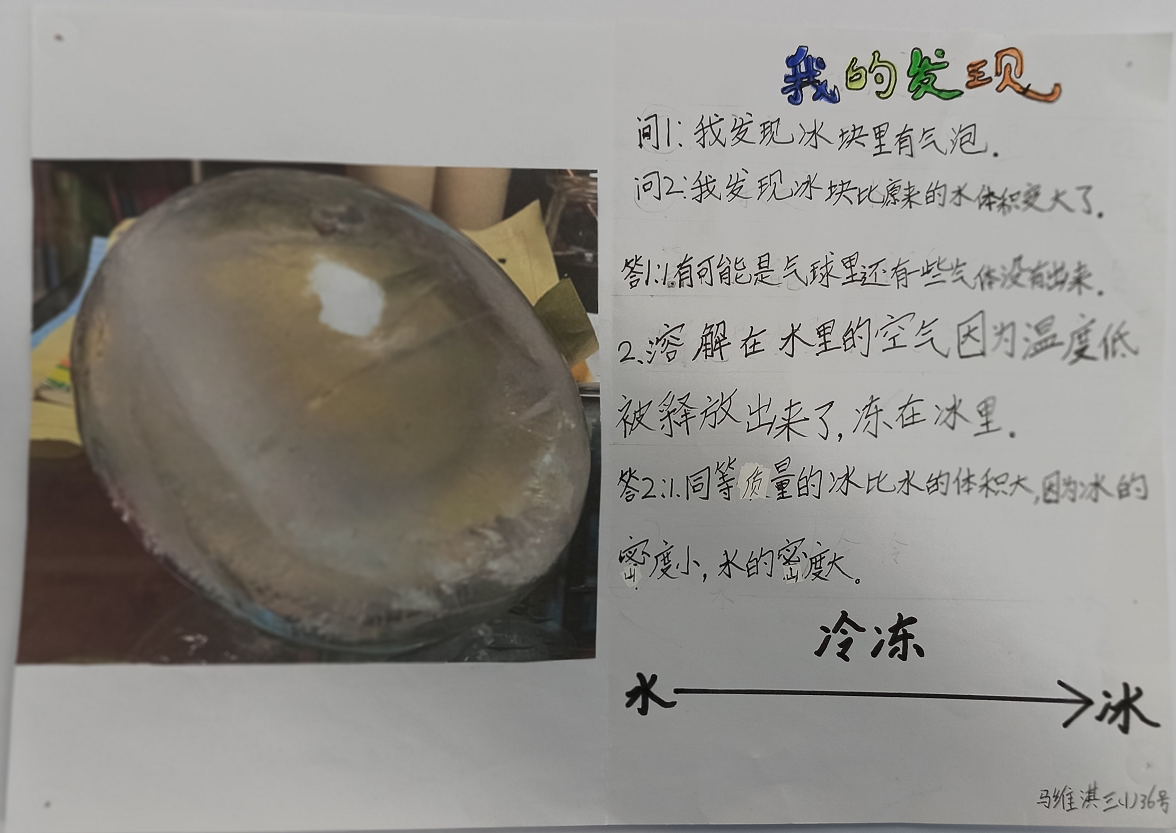 我的发现
问1:我发现冰块里有气泡.
问2:我发现冰块比原来的水体积变大了.
答1:1.有可能是气球里还有一些气体没有出来.
2.溶解在水里的空气因为温度低
被释放出来了,冻在冰里.
答2:1.同等质量的冰比水的体积大,因为冰的
密度小,水的密度大。
冷冻
水 冰
马维淇三(1)36号